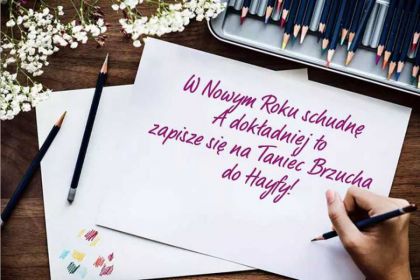 W Nowym Roku schudnę
A dokładniej to
zapisze się na Taniec Brzucha
do Hayfy!